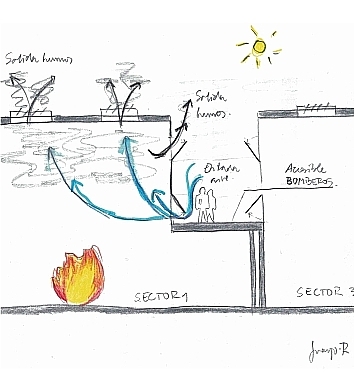 Salida humos
Salida
humos.
Entrada
aire.
Accesible
BOMBEROS.
SECTOR 1
SECTOR 3